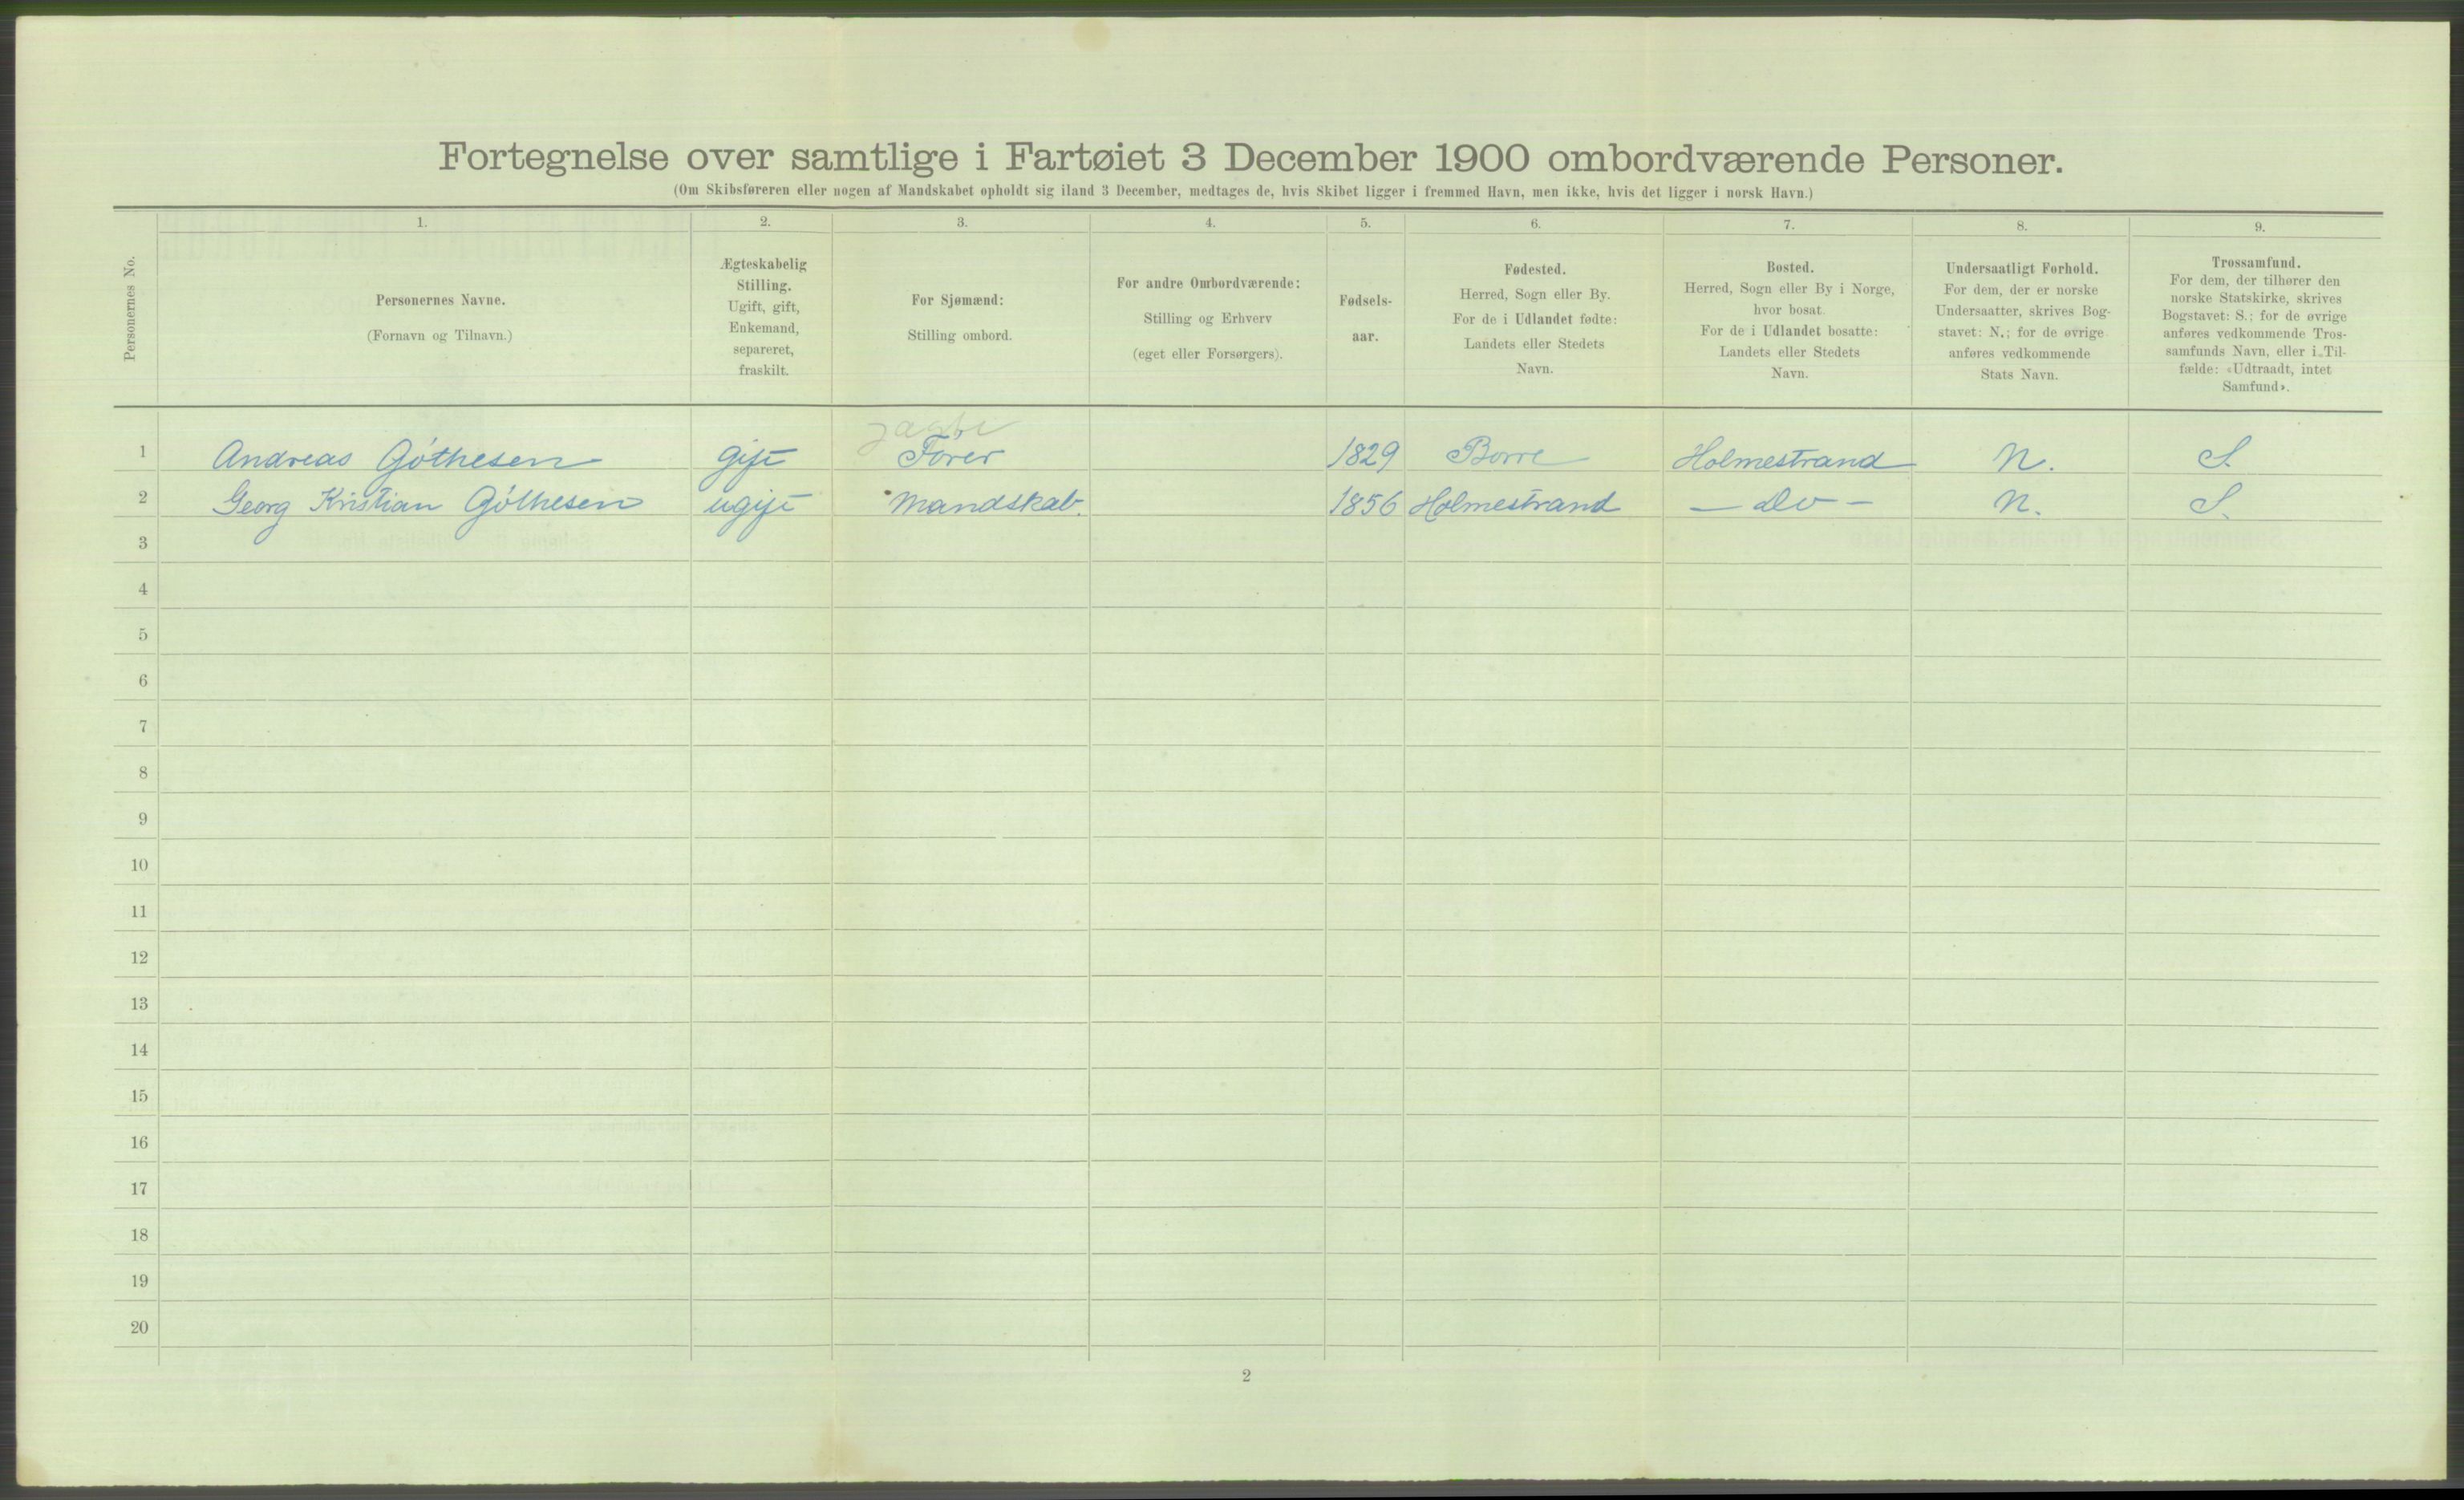 Fortegnelse over samtlige i Fartøiet 3 December 1900 ombordværende Personer.
(Om Skibsføreren eller nogen af Mandskabet opholdt sig iland 3 December, medtages de, hvis Skibet ligger i fremmed Havn, men ikke, hvis det ligger i norsk Havn.)
Personernes No.
1.
Personernes Navne.
(Fornavn og Tilnavn.)
2.
Ægteskabelig
Stilling.
Ugift, gift,
Enkemand,
separeret,
fraskilt.
3.
For Sjømænd:
Stilling ombord.
4.
For andre Ombordværende:
Stilling og Erhverv
(eget eller Forsørgers).
5.
Fødsels-
aar.
6.
Fødested.
Herred, Sogn eller By.
For de i Udlandet fødte:
Landets eller Stedets
Navn.
7.
Bosted.
Herred, Sogn eller By i Norge,
hvor bosat.
For de i Udlandet bosatte:
Landets eller Stedets
Navn.
8.
Undersaatligt Forhold.
For dem, der er norske
Undersaatter, skrives Bog-
stavet: N.; for de øvrige
anføres vedkommende
Stats Navn.
9.
Trossamfund.
For dem, der tilhører den
norske Statskirke, skrives
Bogstavet: S.; for de øvrige
anføres vedkommende Tros-
samfunds Navn, eller i Til-
fælde: «Udtraadt, intet
Samfund».
1 Andreas Góthesen gift Fører 1829 Borre Holmestrand N. S.
2 Georg Kristian Góthesen ugift Mandskab. 1856 Holmestrand - Do - N. S.
3
4
5
6
7
8
9
10
11
12
13
14
15
16
17
18
19
20
2